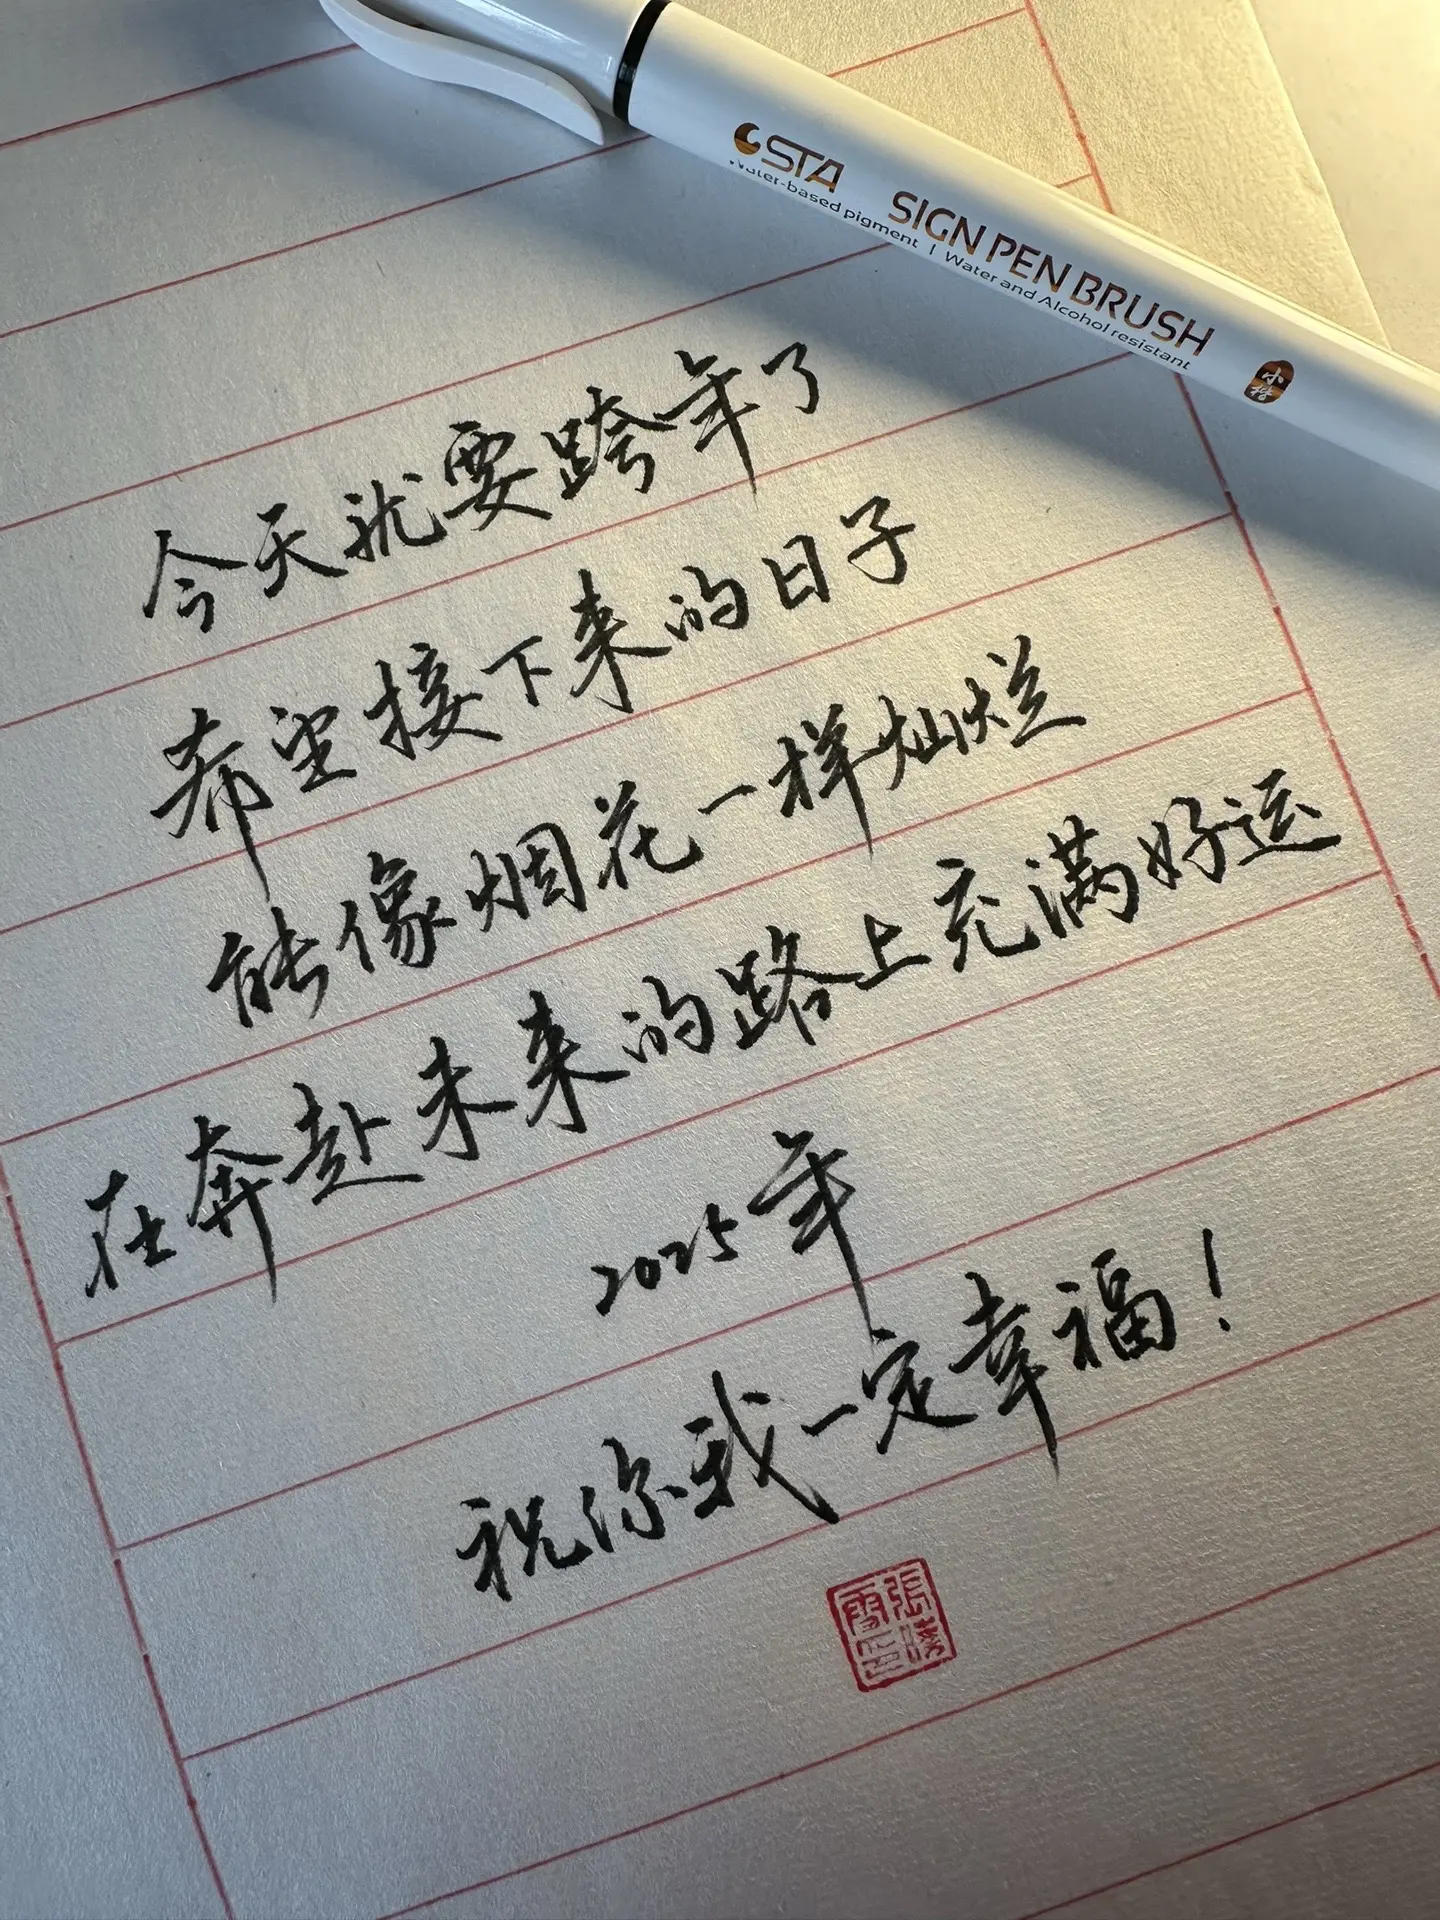 STA SIGN PEN BRUSH
Water-based pigment | Water and Alcohol resistant
小楷
今天就要跨年了
希望接下来的日子
能像烟花一样灿烂
在奔赴未来的路上充满好运
2025年
祝你我一定幸福！